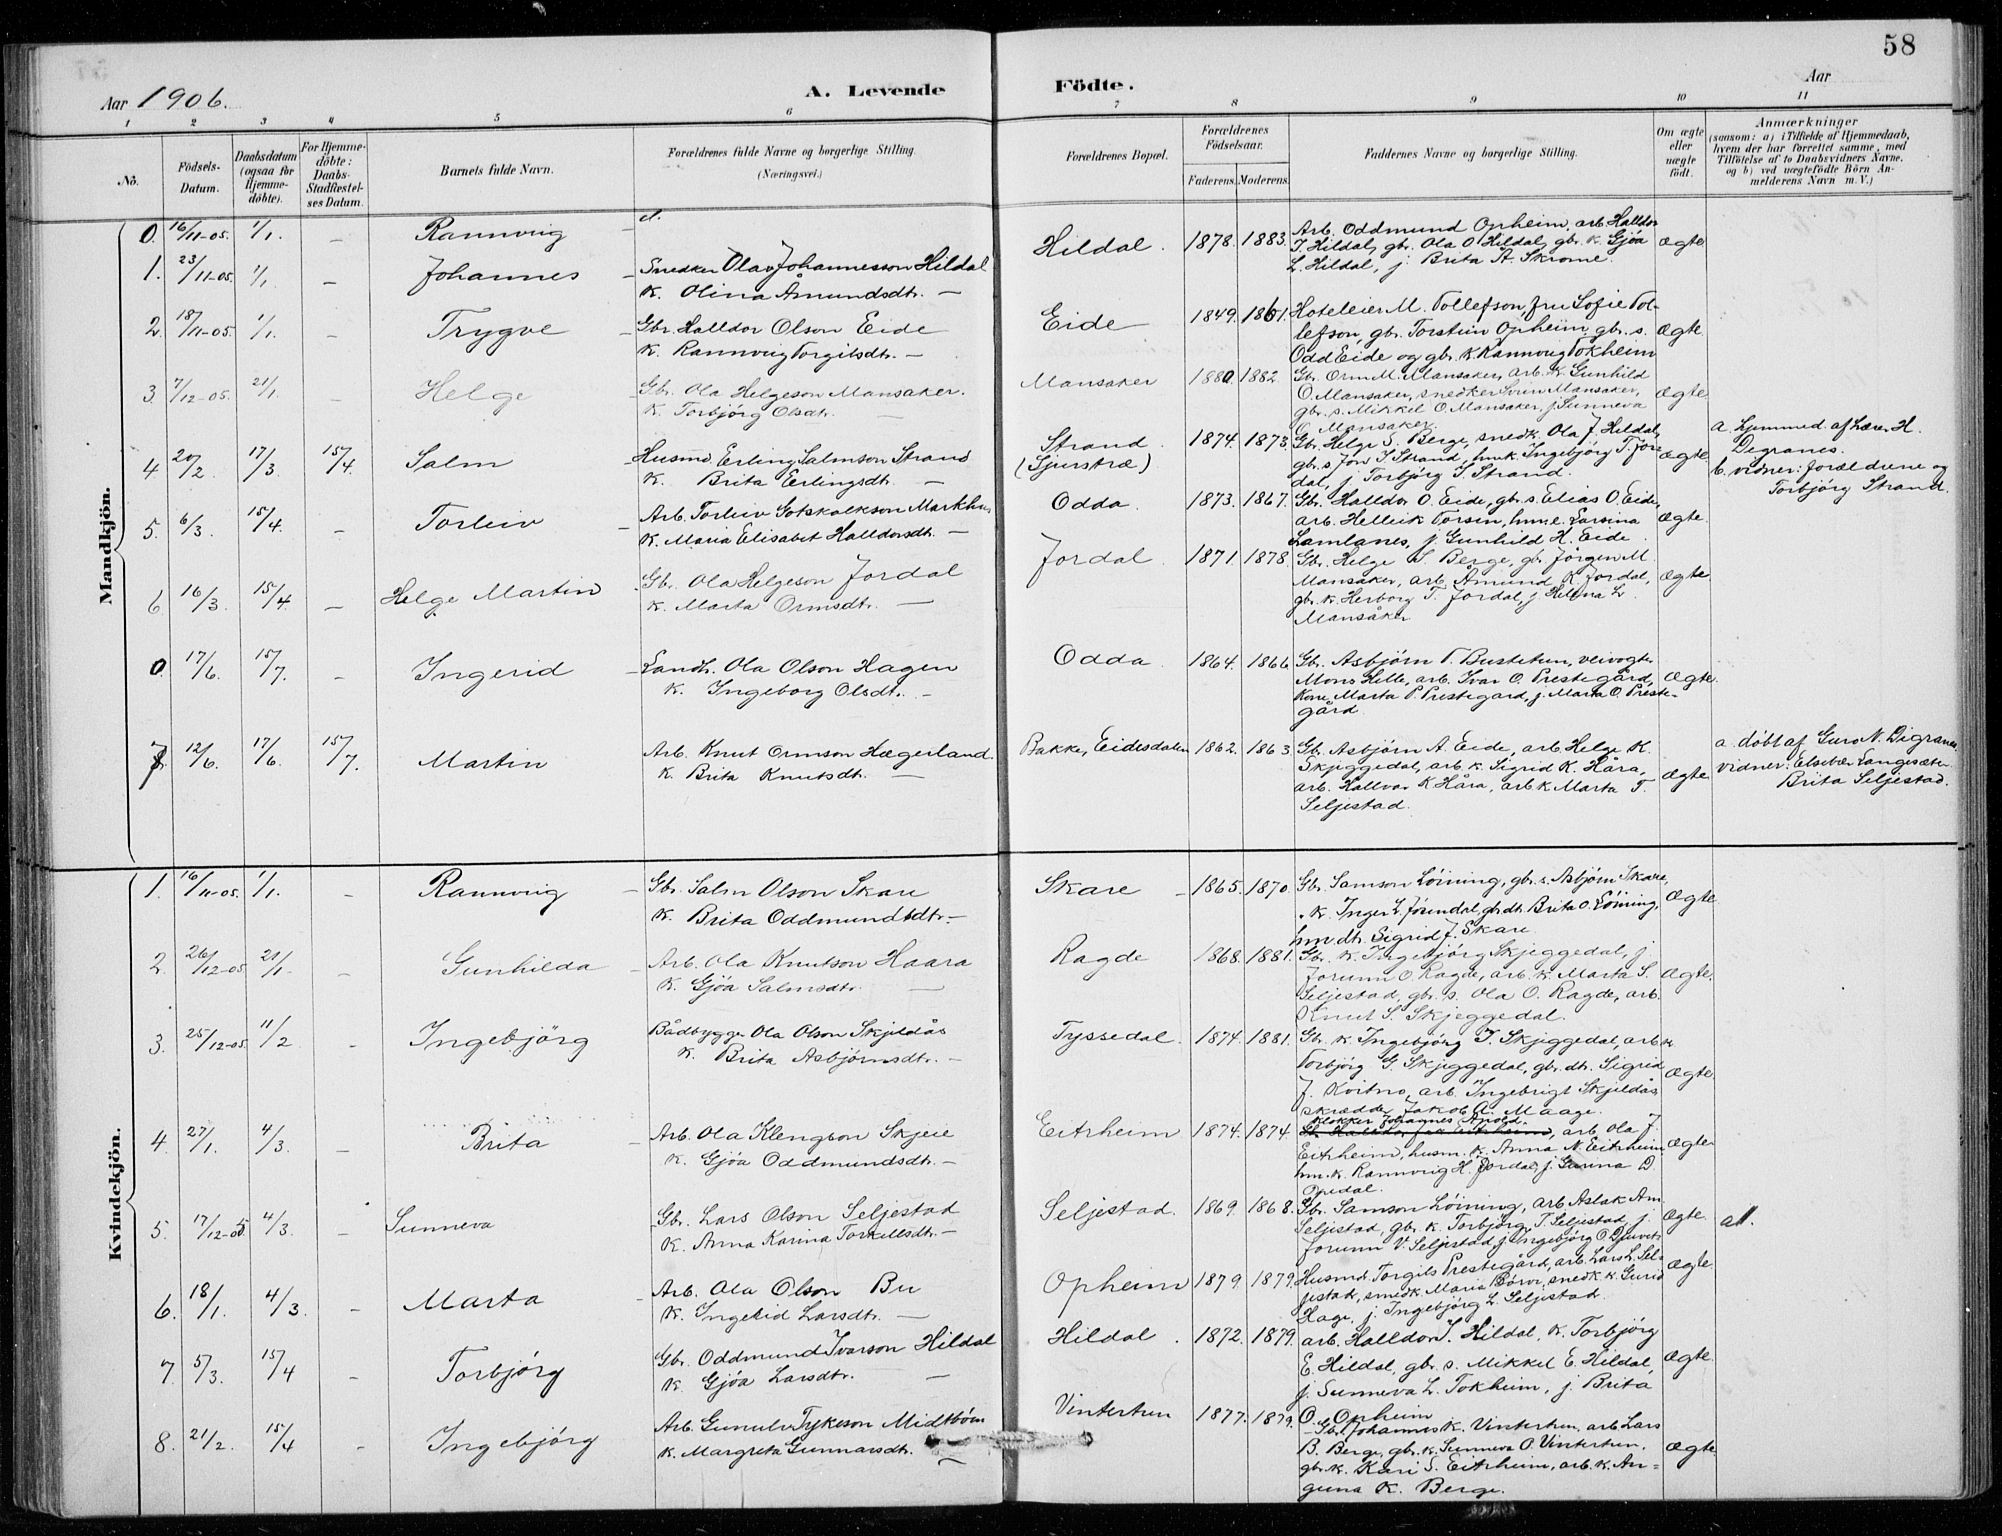 58
Aar 1906.
A. Levende
Födte.
Aar
1 2 3 4 5 6 7 8 9 10 11
No.
Födsels-
Datum.
Daabsdatum
(ogsaa for
Hjemme-
døbte).
For Hjemme-
døbte:
Daabs-
Stadfæstel-
ses Datum.
Barnets fulde Navn.
Forældrenes fulde Navne og borgerlige Stilling.
(Næringsvei.)
Forældrenes Bopæl.
Forældrenes
Födselsaar.
Faderens. Moderens.
Faddernes Navne og borgerlige Stilling.
Om ægte
eller
uægte
født.
Anmærkninger
(saasom: a) i Tilfælde af Hjemmedaab,
hvem der har forrettet samme, med
Tilføielse af to Daabsvidners Navne.
og b) ved uægtefødte Börn An-
melderens Navn m. V.)
Mandkjön.
0. 16/11-05. 1/1. – Rannveig –
1. 23/11-05. 1/1. – Johannes – Snedker Olav Johannesson Hildal
K. Olina Åmundsdtr. –
Hildal. 1878. 1883. Arb. Oddmund Opheim, arb. Halldor
T. Hildal, gbr. Ola O Hildal, gbr. k. Gjøa
L. Hildal, j. Brita A. Skromе. ægte
2. 18/11-05. 1/1. – Trygve – Gbr. Halldor Olson Eide
K. Rannveig Torgilsdtr. –
Eide 1849. 1861. Hoteleier M. Tollefson, fru Sofie Tol-
lefson, gbr. Torstein Opheim, gbr. s.
Odd Eide og gbr. k. Rannveig Tokheim ægte
3. 7/12-05. 21/1. – Helge – Gbr. Ola Helgeson Mansaker.
K. Torbjörg Olsdtr. –
Mansaker 1880. 1882 Gbr. Orm M. Mansaker, arb. k. Gunhild
O. Mansaker, snedker Svein Mansaker,
gbr. s. Mikkel O Mansaker, j. Sunneva
O Mansaker. ægte
4 20/2 17/3 15/4. Salm – Husmd. Erling Salmson Strand
K. Brita Erlingsdtr. –
Strand (Sjurstræ) 1874. 1873. Gbr. Helge S. Berge, snedk. Ola J. Hildal,
gbr. s. Jon S Strand, hmk. Ingebjörg T. Jor-
dal, j. Torbjörg S. Strand. ægte
a. hjemmed. af Lærer H.
Digranes.
b. vidner: forældrene og
Torbjörg Strand.
5. 6/3. 15/4. – Torleiv – Arb. Torleiv Gotskalkson Markhus
K. Maria Elisabet Halldorsdtr. –
Odda. 1873. 1867. Gbr. Halldor O. Eide, gbr. s. Elias O Eide,
arb. Helleik Torsen, hme. Larsina
Lamlanes, j. Gunhild H. Eide. ægte.
6. 16/3. 15/4. – Helge Martin Gbr. Ola Helgeson Jordal
K. Marta Ormsdtr. –
Jordal. 1871. 1878. Gbr. Helge S. Berge, gbr. Jörgen M.
Mansåker, arb. Åmund K. Jordal,
gbr. k. Herborg T. Jordal, j. Helena L.
Mansåker ægte
0. 17/6. 15/7. – Ingerid – Landh. Ola Olson Hagen
K. Ingeborg Olsdtr. –
Odda. 1864. 1866. Gbr. Asbjörn T. Bustetun, veivogter
Mons Helle, arb. Ivar O. Prestegård,
Kone Marta P. Prestegard, j. Marta O. Preste-
gård. ægte.
7. 12/6. 17/6. 15/7. Martin Arb. Knut Ormson Hægerland.
K. Brita Knutsdt. –
Bakke, Eidesdalen 1862. 1863. Gbr. Asbjörn A. Eide, arb. Helge K.
Skjeggedal, arb. k. Sigrid K. Håra,
arb. Hallvor K Håra, arb. k. Marta T.
Seljestad. ægte
a. döbt af Guro N. Digranes
Vidner: Elsebe Langesæter
Brita Seljestad.
Kvindekjön.
1. 16/11-05. 1/1. – Rannveig – Gbr. Salm Olson Skare
K. Brita Oddmundsdtr. –
Skare – 1865. 1870. Gbr. Samson Löining, gbr. s. Asbjörn Skare,
k. Inger L. Jösendal, gb. dt. Brita O. Löining,
hm. dtr. Sigrid J. Skare. ægte.
2. 26/12-05. 21/1. – Gunhilda – Arb. Ola Knutson Haara
K. Gjöa Salmsdtr. –
Ragde 1868. 1881. Gbr. k. Ingebjörg Skjeggedal, j.
Jorunn O Ragde, arb. k. Marta S.
Seljestad, gbr. s. Ola O. Ragde, arb.
Knut S. Skjeggedal. ægte.
3. 25/12-05. 11/2 – Ingebjörg Bådbygger Ola Olson Skjeldås
K. Brita Asbjörnsdtr. –
Tyssedal. 1874. 1881. Gbr. k. Ingebjörg T. Skjeggedal, arb. k.
Torbjörg G. Skjeggedal, gbr. dtr. Sigrid
J. Kvitno, arb. Ingebrigt Skjeldås,
skrædder Jakob A. Maage. ægte.
4. 27/1. 4/3. – Brita – Arb. Ola Klengson Skjeie
K. Gjöa Oddmundsdtr. –
Eitrheim 1874. 1874. Klokker Johannes Apold, arb. Ola J.
Eitrheim, husm. k. Anna N. Eitrheim
hm. k. Rannveig H. Jordal, j. Gunna D.
Opedal. ægte
5. 17/12-05. 4/3. – Sunneva Gbr. Lars Olson Seljestad
K. Anna Karina Torkellsdtr. –
Seljestad. 1869. 1868. Gbr. Samson Löining, arb. Aslak Am.
Seljestad, gbr. k. Torbjörg T. Seljestad j.
Jorunn V. Seljestad j. Ingebjörg O Djuvet. ægte. all.
6. 18/1. 4/3. – Marta – Arb. Ola Olson Bu
K. Ingerid Larsdtr. –
Opheim 1879. 1879. Husmd. Torgils Prestegård, arb. Lars L. Sel-
jestad, smedk. Maria Börve, snedk. k. Gurid
Hage, j. Ingebjörg L. Seljestad. ægte.
7. 5/3. 15/4 – Torbjörg Gbr. Oddmund Ivarson Hildal
K. Gjöa Larsdtr. –
Hildal. 1872. 1879. arb. Halldor T. Hildal, k. Torbjörg
E. Hildal, gbr. s. Mikkel E. Hildal,
j. Sunneva L. Tokheim, j. Brita
O. Opheim ægte.
8. 21/2. 15/4 – Ingebjörg Arb. Gunulv Tykeson Midtböen
K. Margreta Gunnarsdt. –
Vintertun 1877. 1879. Gbr. Johannes K. Vintertun, arb. Lars
B. Berge, gbr. k. Sunneva O. Vintertun,
gbr. k. Kari S. Eitrheim, arb. k. An-
guna K. Berge. ægte